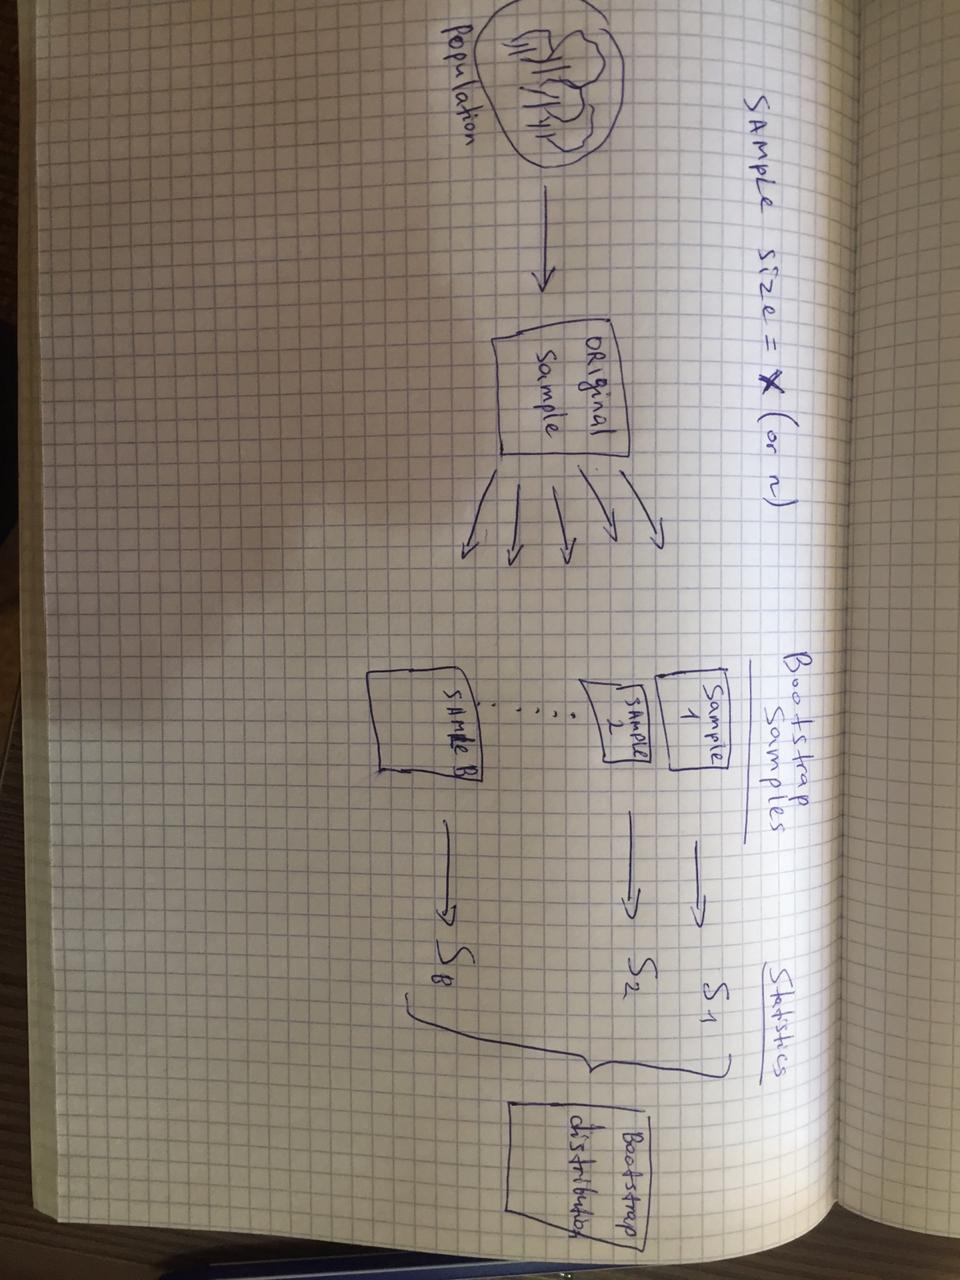 SAMPLe size = X (or n)
Population
ORiginal
Sample
Bootstrap
Samples
Sample
1
SAMPLe
2
SAMPLe B
Statistics
S1
S2
SB
Bootstrap
distribution